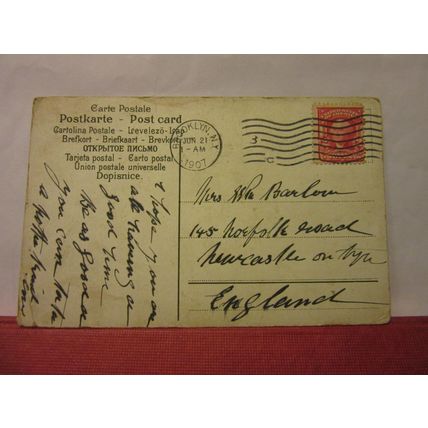 Carte Postale
Postkarte - Post card
Cartolina Postale - Levelező-Lap
Brefkort - Briefkaart - Brevkort
ОТКРЫТОЕ ПИСЬМО
Tarjeta postal - Carto postal
Union postale universelle
Dopisnice.
BROOKLYN, N.Y.
JUN. 21
-AM
1907
3
C
Mrs Barlow
145 Norfolk Road
Newcastle on Tyne
England
I hope you are
all having a
good time
Be as good a
you can